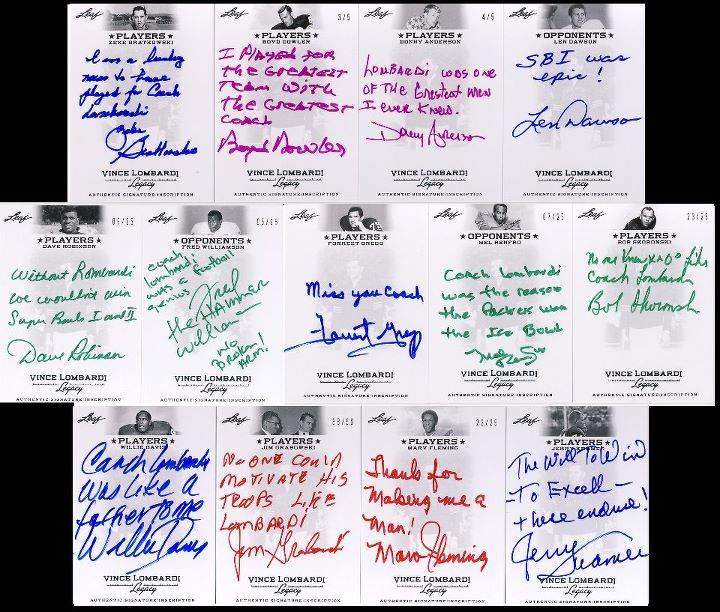 Leaf
★PLAYERS★
ZEKE BRATKOWSKI
I am a lucky
man to have
played for Coach
Lombardi
Zeke
Bratkowski
VINCE LOMBARDI
Legacy
AUTHENTIC SIGNATURE/INSCRIPTION
Leaf
3/5
★PLAYERS★
BOYD DOWLER
I PLAYED FOR
THE GREATEST
TEAM WITH
THE GREATEST
COACH
Boyd Dowler
VINCE LOMBARDI
Legacy
AUTHENTIC SIGNATURE/INSCRIPTION
Leaf
4/5
★PLAYERS★
DONNY ANDERSON
LOMBARDI WAS ONE
OF THE Greatest men
I ever knew.
Donny Anderson
VINCE LOMBARDI
Legacy
AUTHENTIC SIGNATURE/INSCRIPTION
Leaf
★OPPONENTS★
LEN DAWSON
SBI was
epic!
Len Dawson
VINCE LOMBARDI
Legacy
AUTHENTIC SIGNATURE/INSCRIPTION
Leaf
05/25
★PLAYERS★
DAVE ROBINSON
Without Lombardi
we wouldnt win
Super Bowls I and II
Dave Robinson
VINCE LOMBARDI
Legacy
AUTHENTIC SIGNATURE/INSCRIPTION
Leaf
05/25
★OPPONENTS★
FRED WILLIAMSON
Coach
Lombardi
was a football
genius
Fred
the HAMMER
Williamson
NO
BROKEN
ARM!
VINCE LOMBARDI
Legacy
AUTHENTIC SIGNATURE/INSCRIPTION
Leaf
★PLAYERS★
FORREST GREGG
Miss you Coach
Forrest Gregg
VINCE LOMBARDI
Legacy
AUTHENTIC SIGNATURE/INSCRIPTION
Leaf
07/25
★OPPONENTS★
MEL RENFRO
Coach Lombardi
was the reason
the Packers won
the Ice Bowl
VINCE LOMBARDI
Legacy
AUTHENTIC SIGNATURE/INSCRIPTION
Leaf
23/25
★PLAYERS★
BOB SKORONSKI
No one
Coach Lombardi
Bob Skoronski
VINCE LOMBARDI
Legacy
AUTHENTIC SIGNATURE/INSCRIPTION
Leaf
★PLAYERS★
WILLIE DAVIS
Coach Lombardi
was like a
father to me
Willie Davis
VINCE LOMBARDI
Legacy
AUTHENTIC SIGNATURE/INSCRIPTION
Leaf
38/50
★PLAYERS★
JIM GRABOWSKI
NO ONE COULD
MOTIVATE HIS
TROOPS LIKE
LOMBARDI
Jim Grabowski
VINCE LOMBARDI
Legacy
AUTHENTIC SIGNATURE/INSCRIPTION
Leaf
22/25
★PLAYERS★
MARV FLEMING
Thanks for
Making me a
Man!
Marv Fleming
VINCE LOMBARDI
Legacy
AUTHENTIC SIGNATURE/INSCRIPTION
Leaf
★PLAYERS★
JERRY KRAMER
The Will To Win
-To Excell-
these endure!
Jerry Kramer
VINCE LOMBARDI
Legacy
AUTHENTIC SIGNATURE/INSCRIPTION